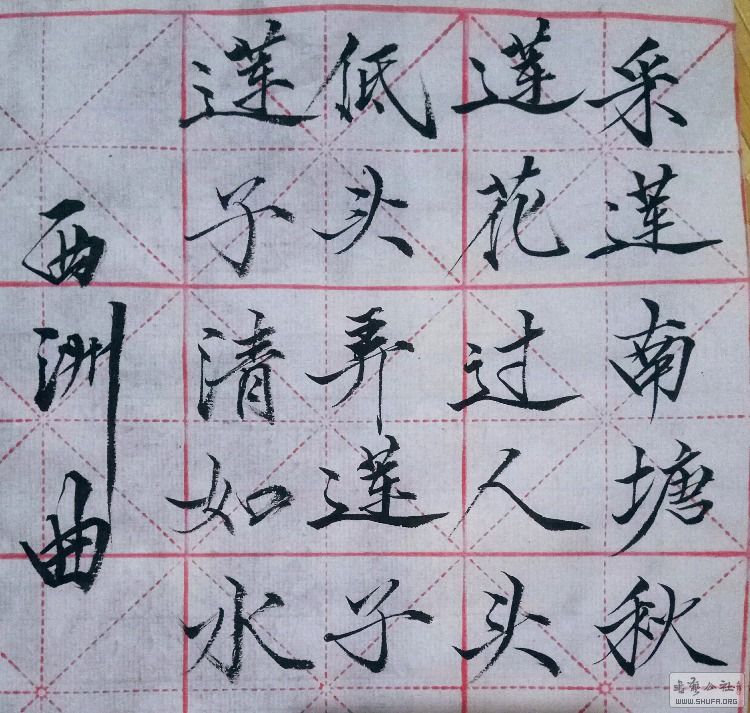 采莲南塘秋
莲花过人头
低头弄莲子
莲子清如水
西洲曲
书法公社
WWW.SHUFA.ORG